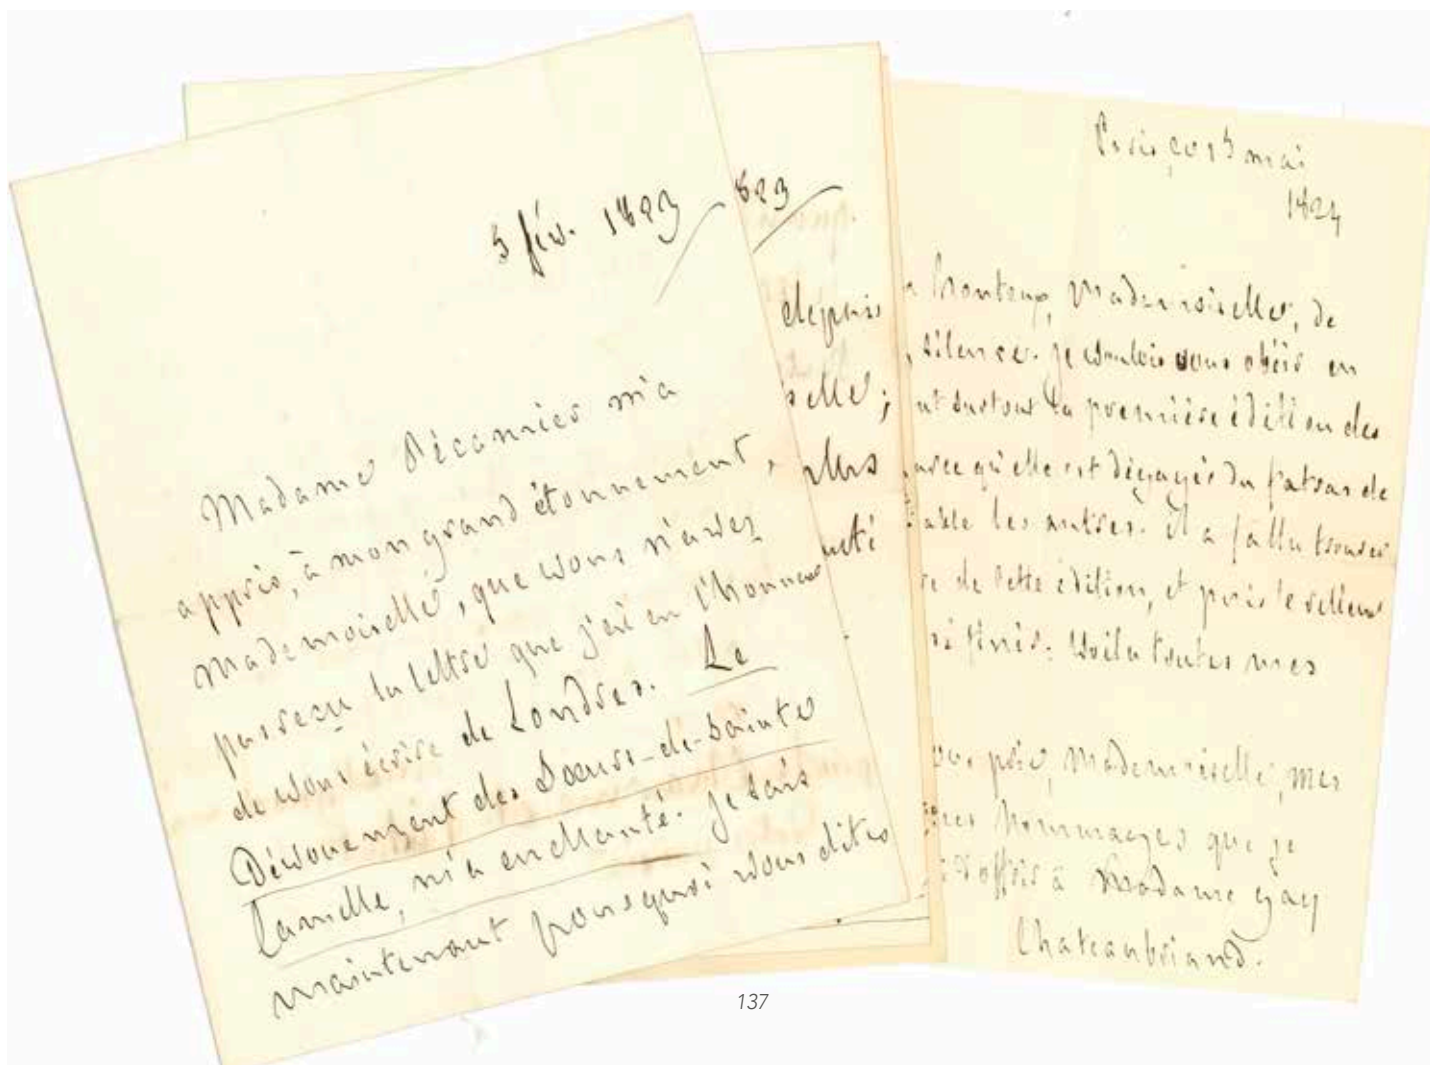 5 fév. 1823
Madame Récamier m'a
appris, à mon grand étonnement,
Mademoiselle, que vous n'avez
pas reçu la lettre que j'ai eu l'honneur
de vous écrire de Londres. Le
Dévouement des Sœurs-de-Sainte
Camille, m'a enchanté. Je sais
maintenant pourquoi vous dites
823
depuis
selle;
plus
Paris, ce 13 mai
1824
honteux, Mademoiselle, de
silence. Je voulois vous obéir en
surtout la première édition des
parce qu'elle est dégagée du fatras de
les autres. il a fallu trouver
de cette édition, et puis le relieur
fini. Voilà toutes mes
prie, Mademoiselle, mes
hommages que je
d'offrir à Madame Gay
Chateaubriand.
137